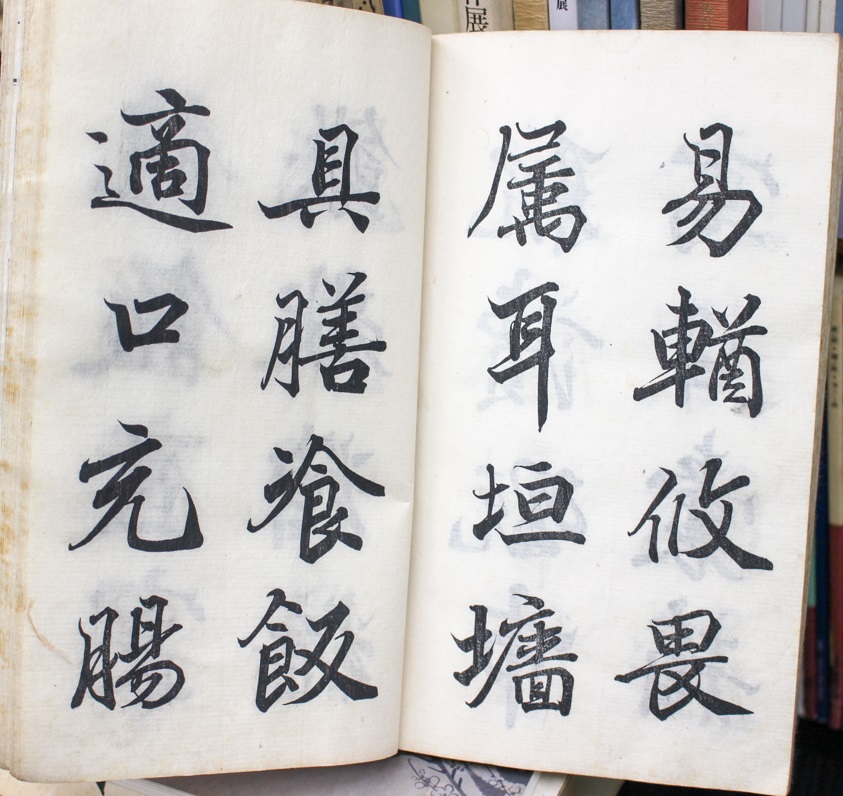 易輶攸畏
属耳垣墻
具膳飡飯
適口充腸